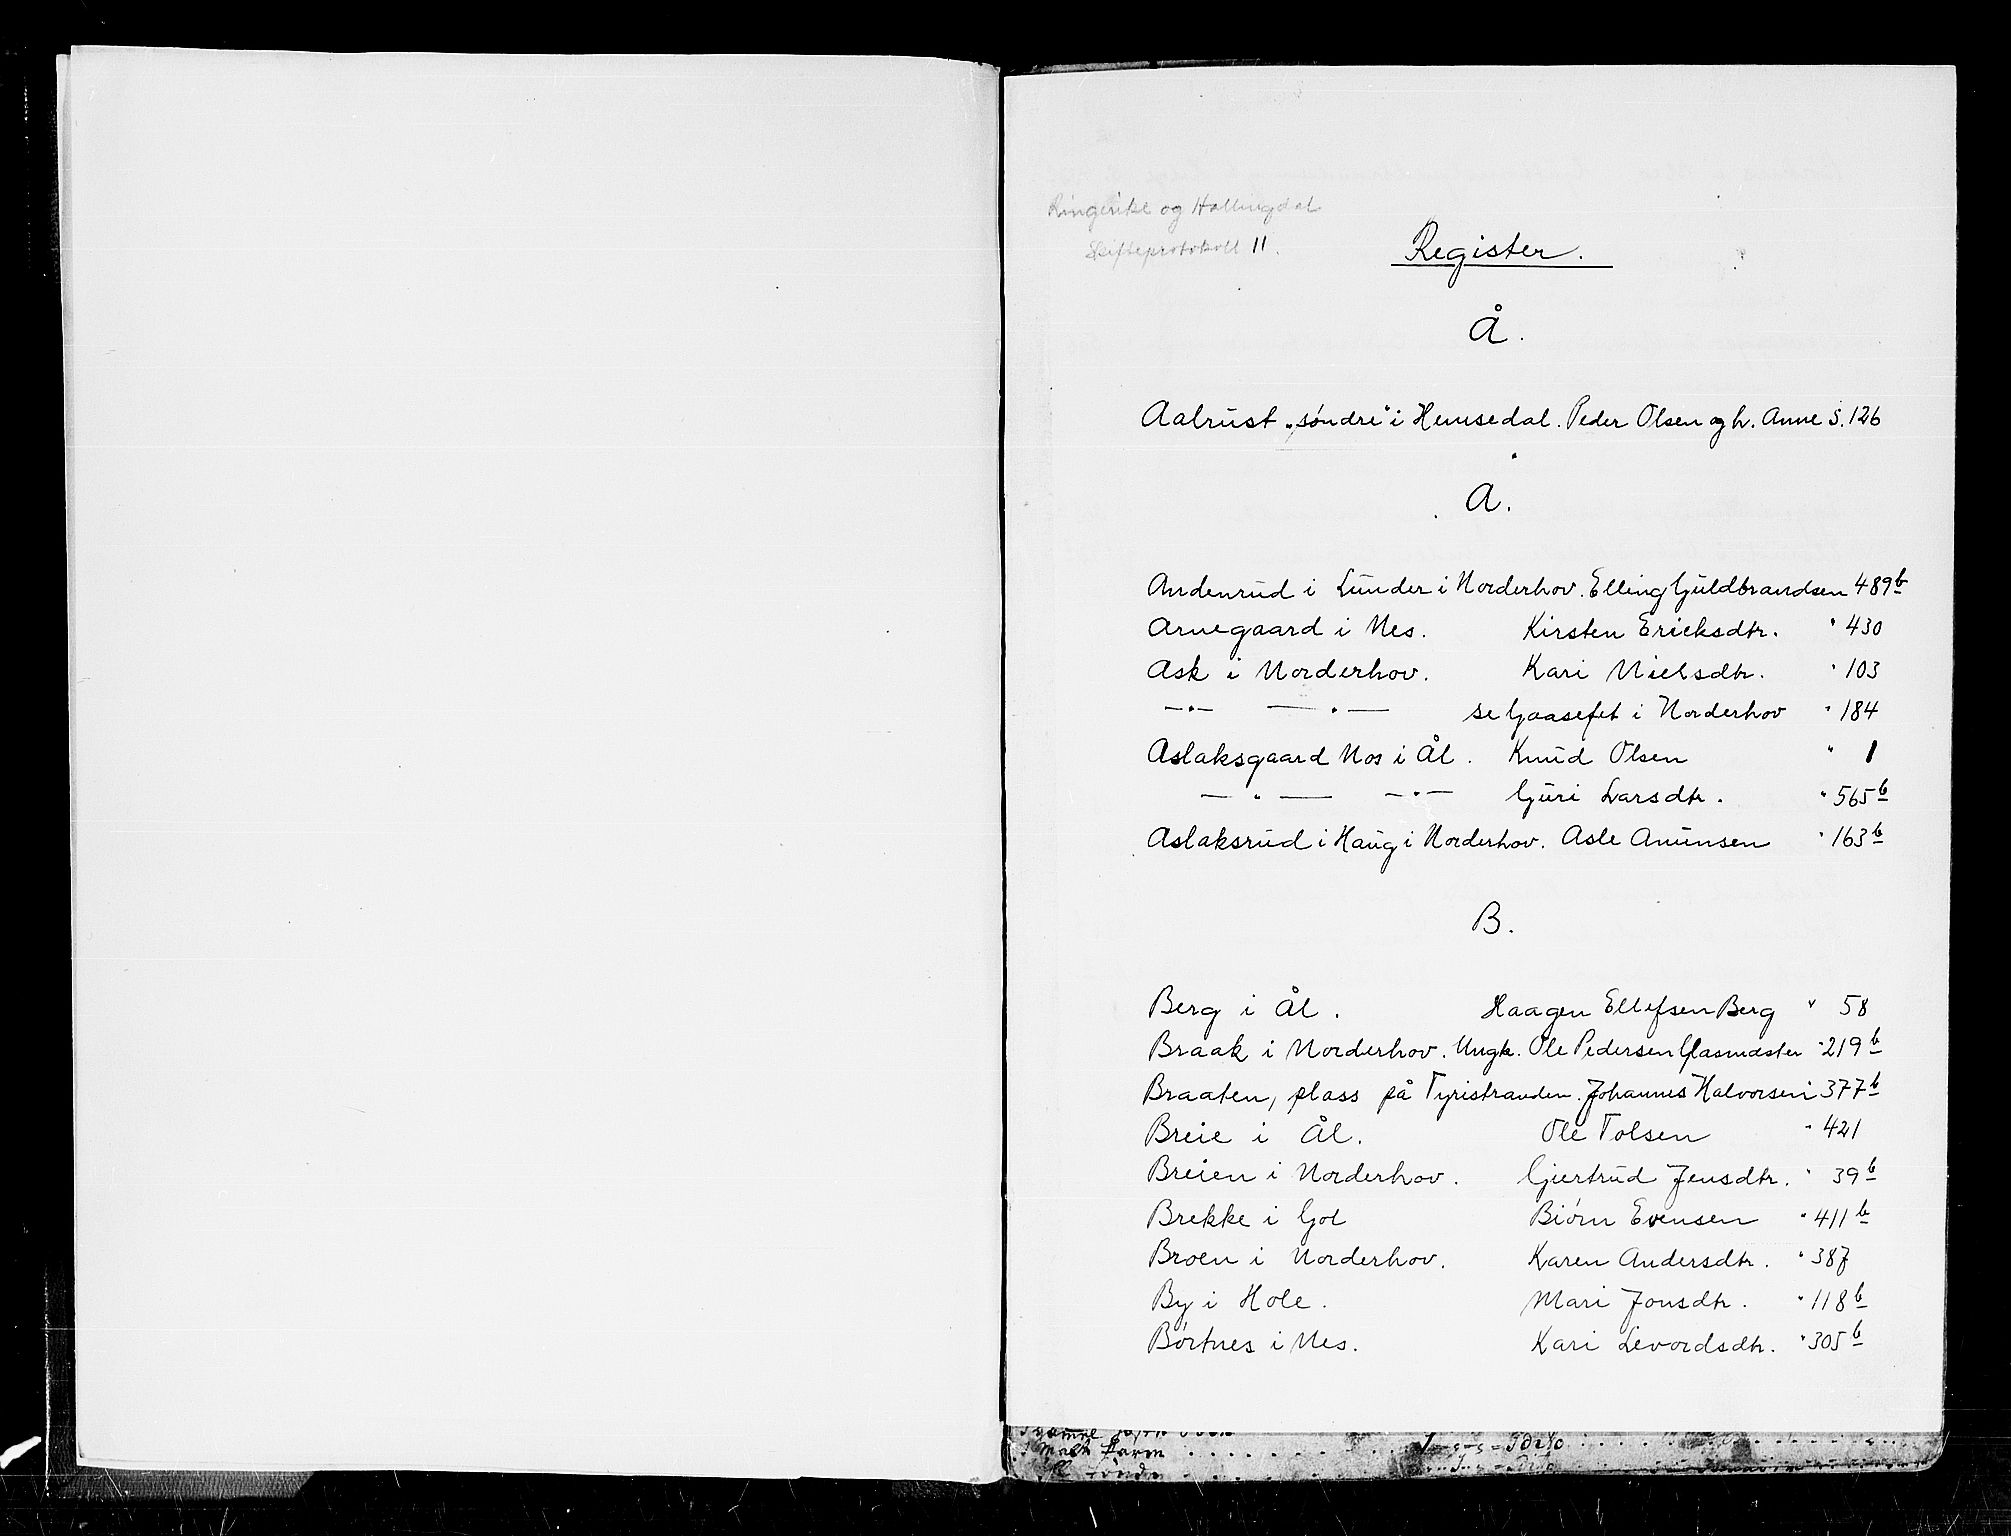 Ringerike og Hallingdal
Skifteprotokoll 11.
Register.
Å.
Aalrust "søndre" i Hemsedal. Peder Olsen og h. Anne S. 126
A.
Andenrud i Lunder i Norderhov. Elling Guldbrandsen 489b
Arnegaard i Nes. Kirsten Ericksdtr. " 430
Ask i Norderhov. Kari Nielsdtr. " 103
—"— —"— se Gaasefet i Norderhov " 184
Aslaksgaard Nos i Ål. Knud Olsen " 1
—"— —"— Guri Larsdtr. " 565b
Aslaksrud i Haug i Norderhov. Asle Amunsen " 163b
B.
Berg i Ål. Haagen Ellefsen Berg " 58
Braak i Norderhov. Ungk. Ole Pedersen Glasmæster " 219b
Braaten, plass på Tyristranden. Johannes Halvorsen " 377b
Breie i Ål. Ole Tolsen " 421
Breien i Norderhov. Giertrud Jensdtr. " 39b
Brekke i Gol Biørn Evensen " 411b
Broen i Norderhov. Karen Andersdtr. " 387
By i Hole. Mari Jonsdtr. " 118b
Børtnes i Nes. Kari Levordsdtr. " 305b